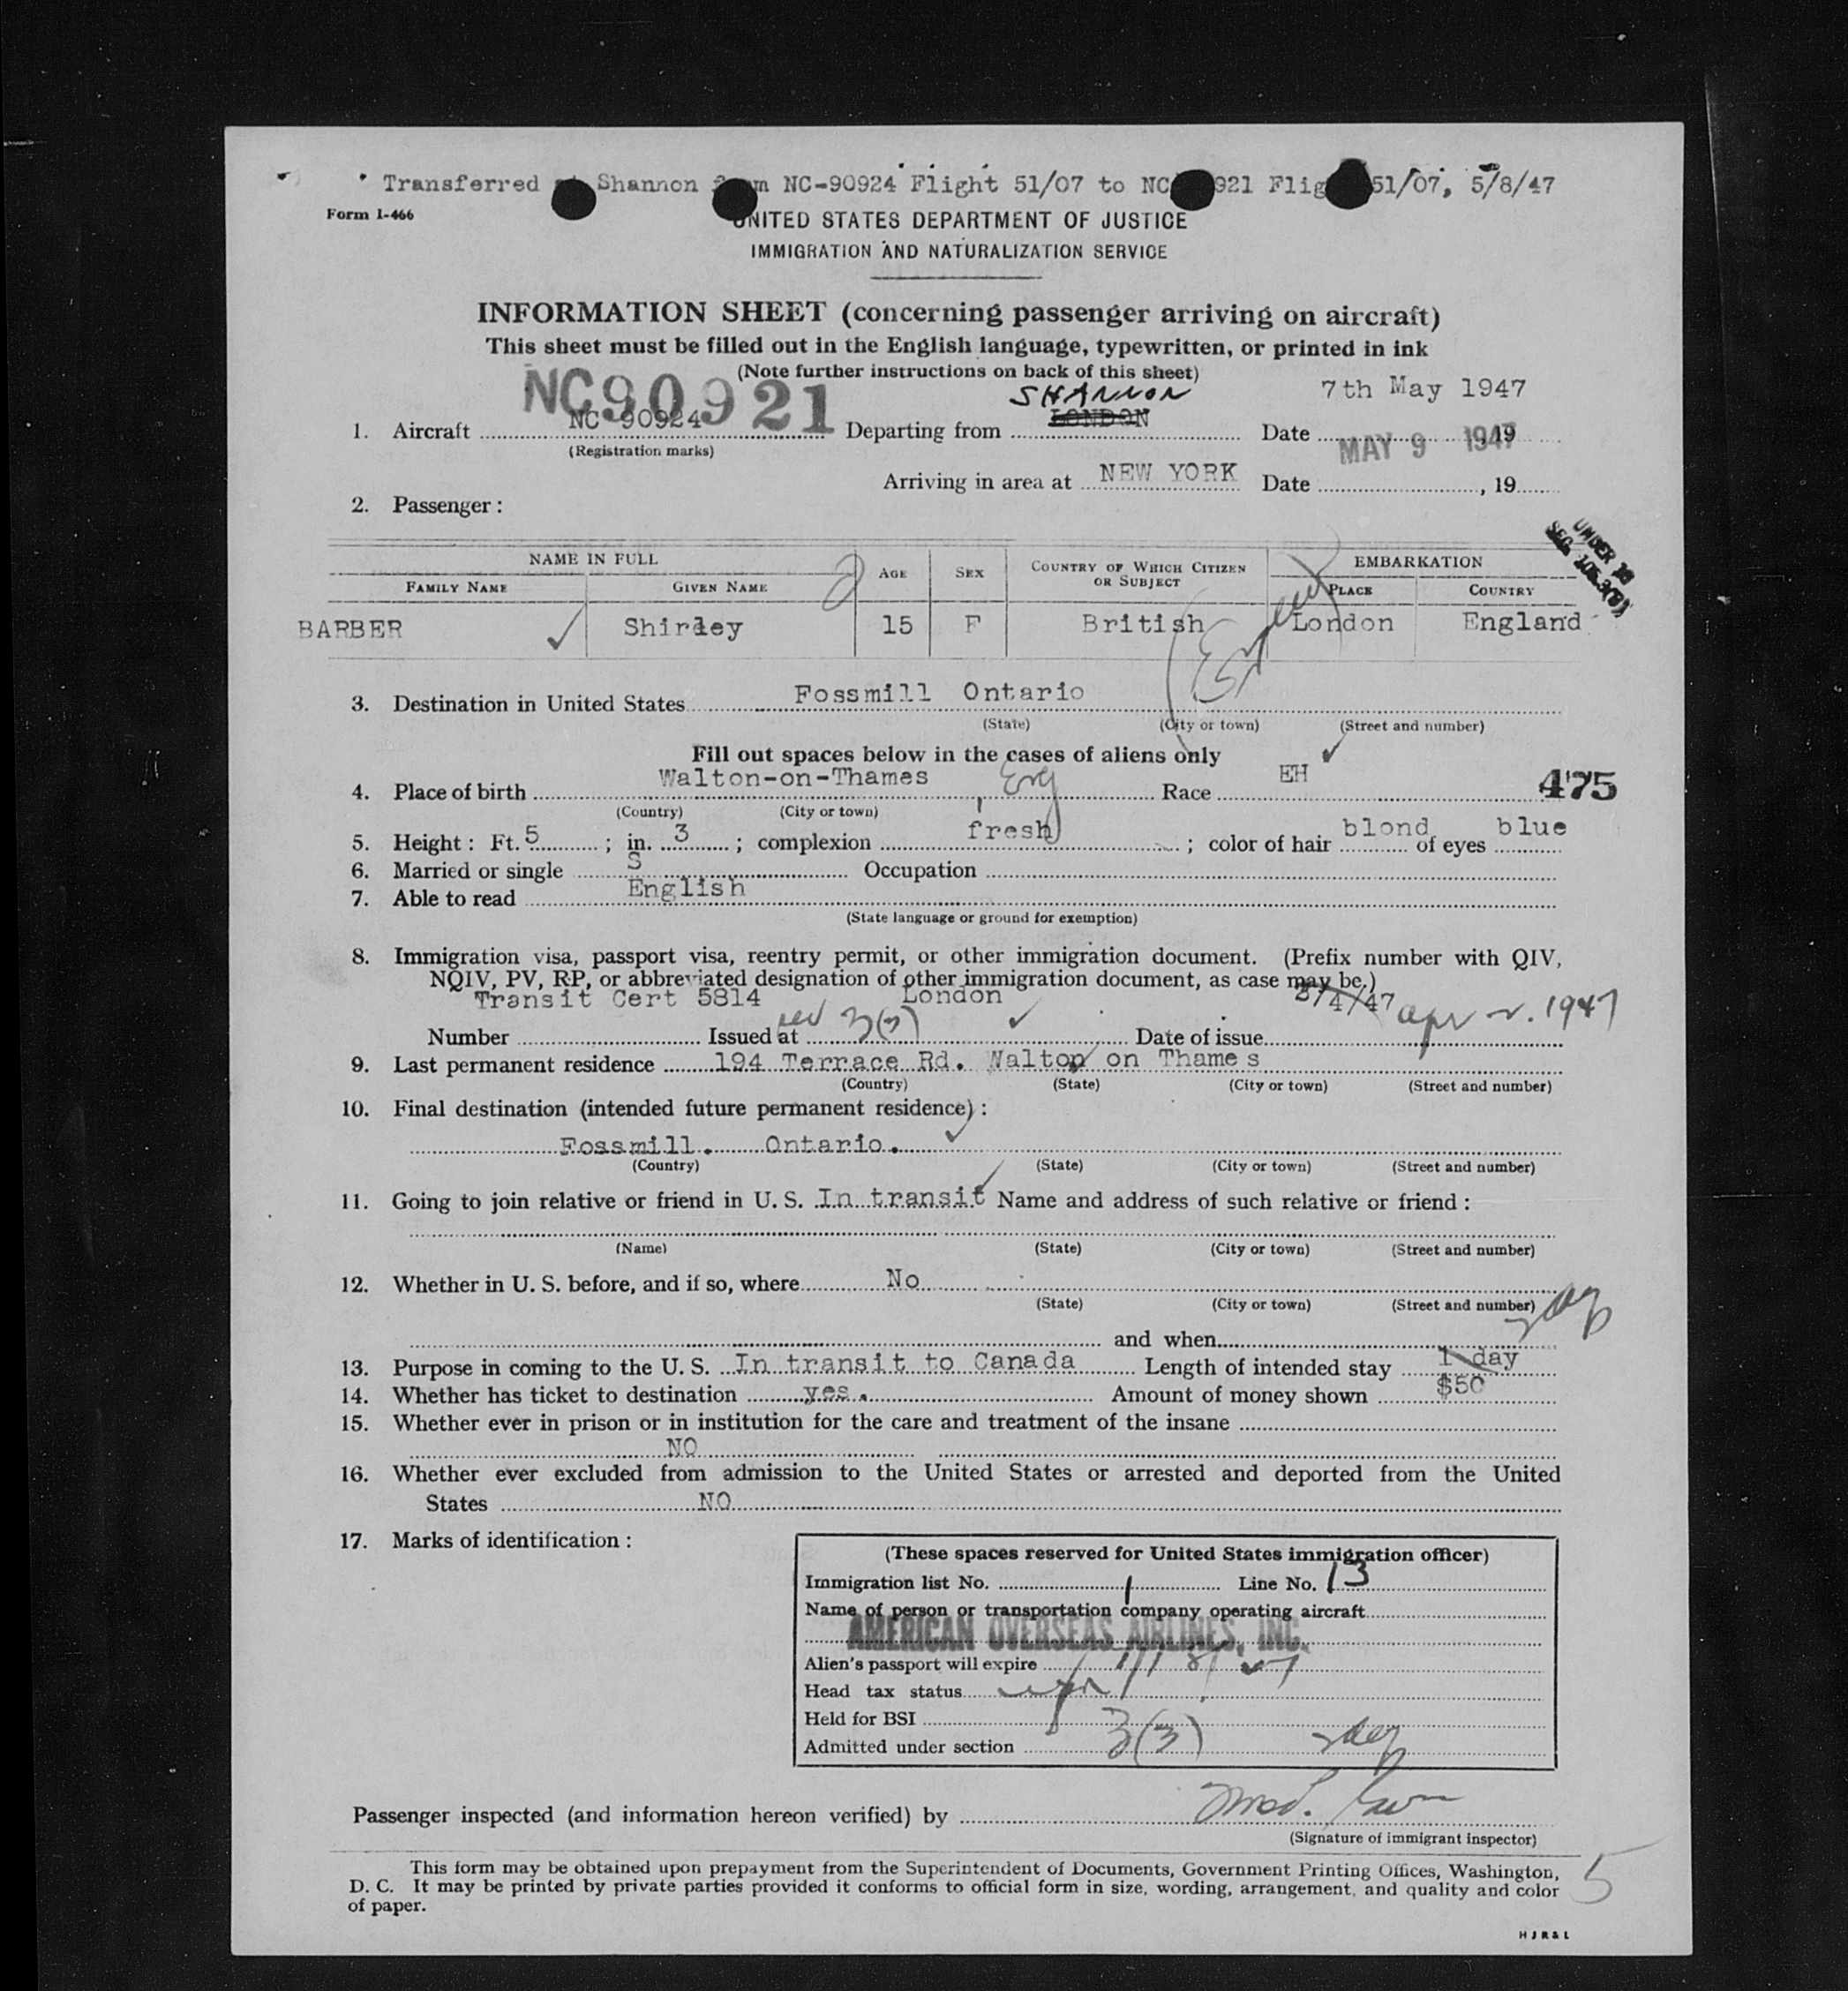 Transferred at Shannon from NC-90924 Flight 51/07 to NC 921 Flig 51/07, 5/8/47
Form I-466
UNITED STATES DEPARTMENT OF JUSTICE
IMMIGRATION AND NATURALIZATION SERVICE
INFORMATION SHEET (concerning passenger arriving on aircraft)
This sheet must be filled out in the English language, typewritten, or printed in ink
(Note further instructions on back of this sheet)
NC90921 SHANNON 7th May 1947
1. Aircraft NC 90924 Departing from LONDON Date MAY 9 1947, 19
(Registration marks)
Arriving in area at NEW YORK Date , 19
2. Passenger:
UNDER 16
SEC. 105.3(B)
NAME IN FULL AGE SEX COUNTRY OF WHICH CITIZEN OR SUBJECT EMBARKATION
FAMILY NAME GIVEN NAME PLACE COUNTRY
BARBER Shirley 15 F British London England
3. Destination in United States Fossmill Ontario
(State) (City or town) (Street and number)
Fill out spaces below in the cases of aliens only
4. Place of birth Walton-on-Thames Eng Race EH 475
(Country) (City or town)
5. Height: Ft. 5 ; in. 3 ; complexion fresh ; color of hair blond of eyes blue
6. Married or single S Occupation
7. Able to read English
(State language or ground for exemption)
8. Immigration visa, passport visa, reentry permit, or other immigration document. (Prefix number with QIV,
NQIV, PV, RP, or abbreviated designation of other immigration document, as case may be.)
Transit Cert 5814 London 2/4/47 apr 2. 1947
Number Issued at 3(3) Date of issue
9. Last permanent residence 194 Terrace Rd. Walton on Thames
(Country) (State) (City or town) (Street and number)
10. Final destination (intended future permanent residence):
Fossmill. Ontario.
(Country) (State) (City or town) (Street and number)
11. Going to join relative or friend in U. S. In transit Name and address of such relative or friend:
(Name) (State) (City or town) (Street and number)
12. Whether in U. S. before, and if so, where No
(State) (City or town) (Street and number)
and when
13. Purpose in coming to the U. S. In transit to Canada Length of intended stay 1 day
14. Whether has ticket to destination yes. Amount of money shown $50
15. Whether ever in prison or in institution for the care and treatment of the insane
NO
16. Whether ever excluded from admission to the United States or arrested and deported from the United
States NO
17. Marks of identification:
(These spaces reserved for United States immigration officer)
Immigration list No. 1 Line No. 13
Name of person or transportation company operating aircraft
AMERICAN OVERSEAS AIRLINES, INC.
Alien's passport will expire
Head tax status
Held for BSI
Admitted under section 3(3)
Passenger inspected (and information hereon verified) by
(Signature of immigrant inspector)
This form may be obtained upon prepayment from the Superintendent of Documents, Government Printing Offices, Washington,
D. C. It may be printed by private parties provided it conforms to official form in size, wording, arrangement, and quality and color
of paper.
5
HJR&L